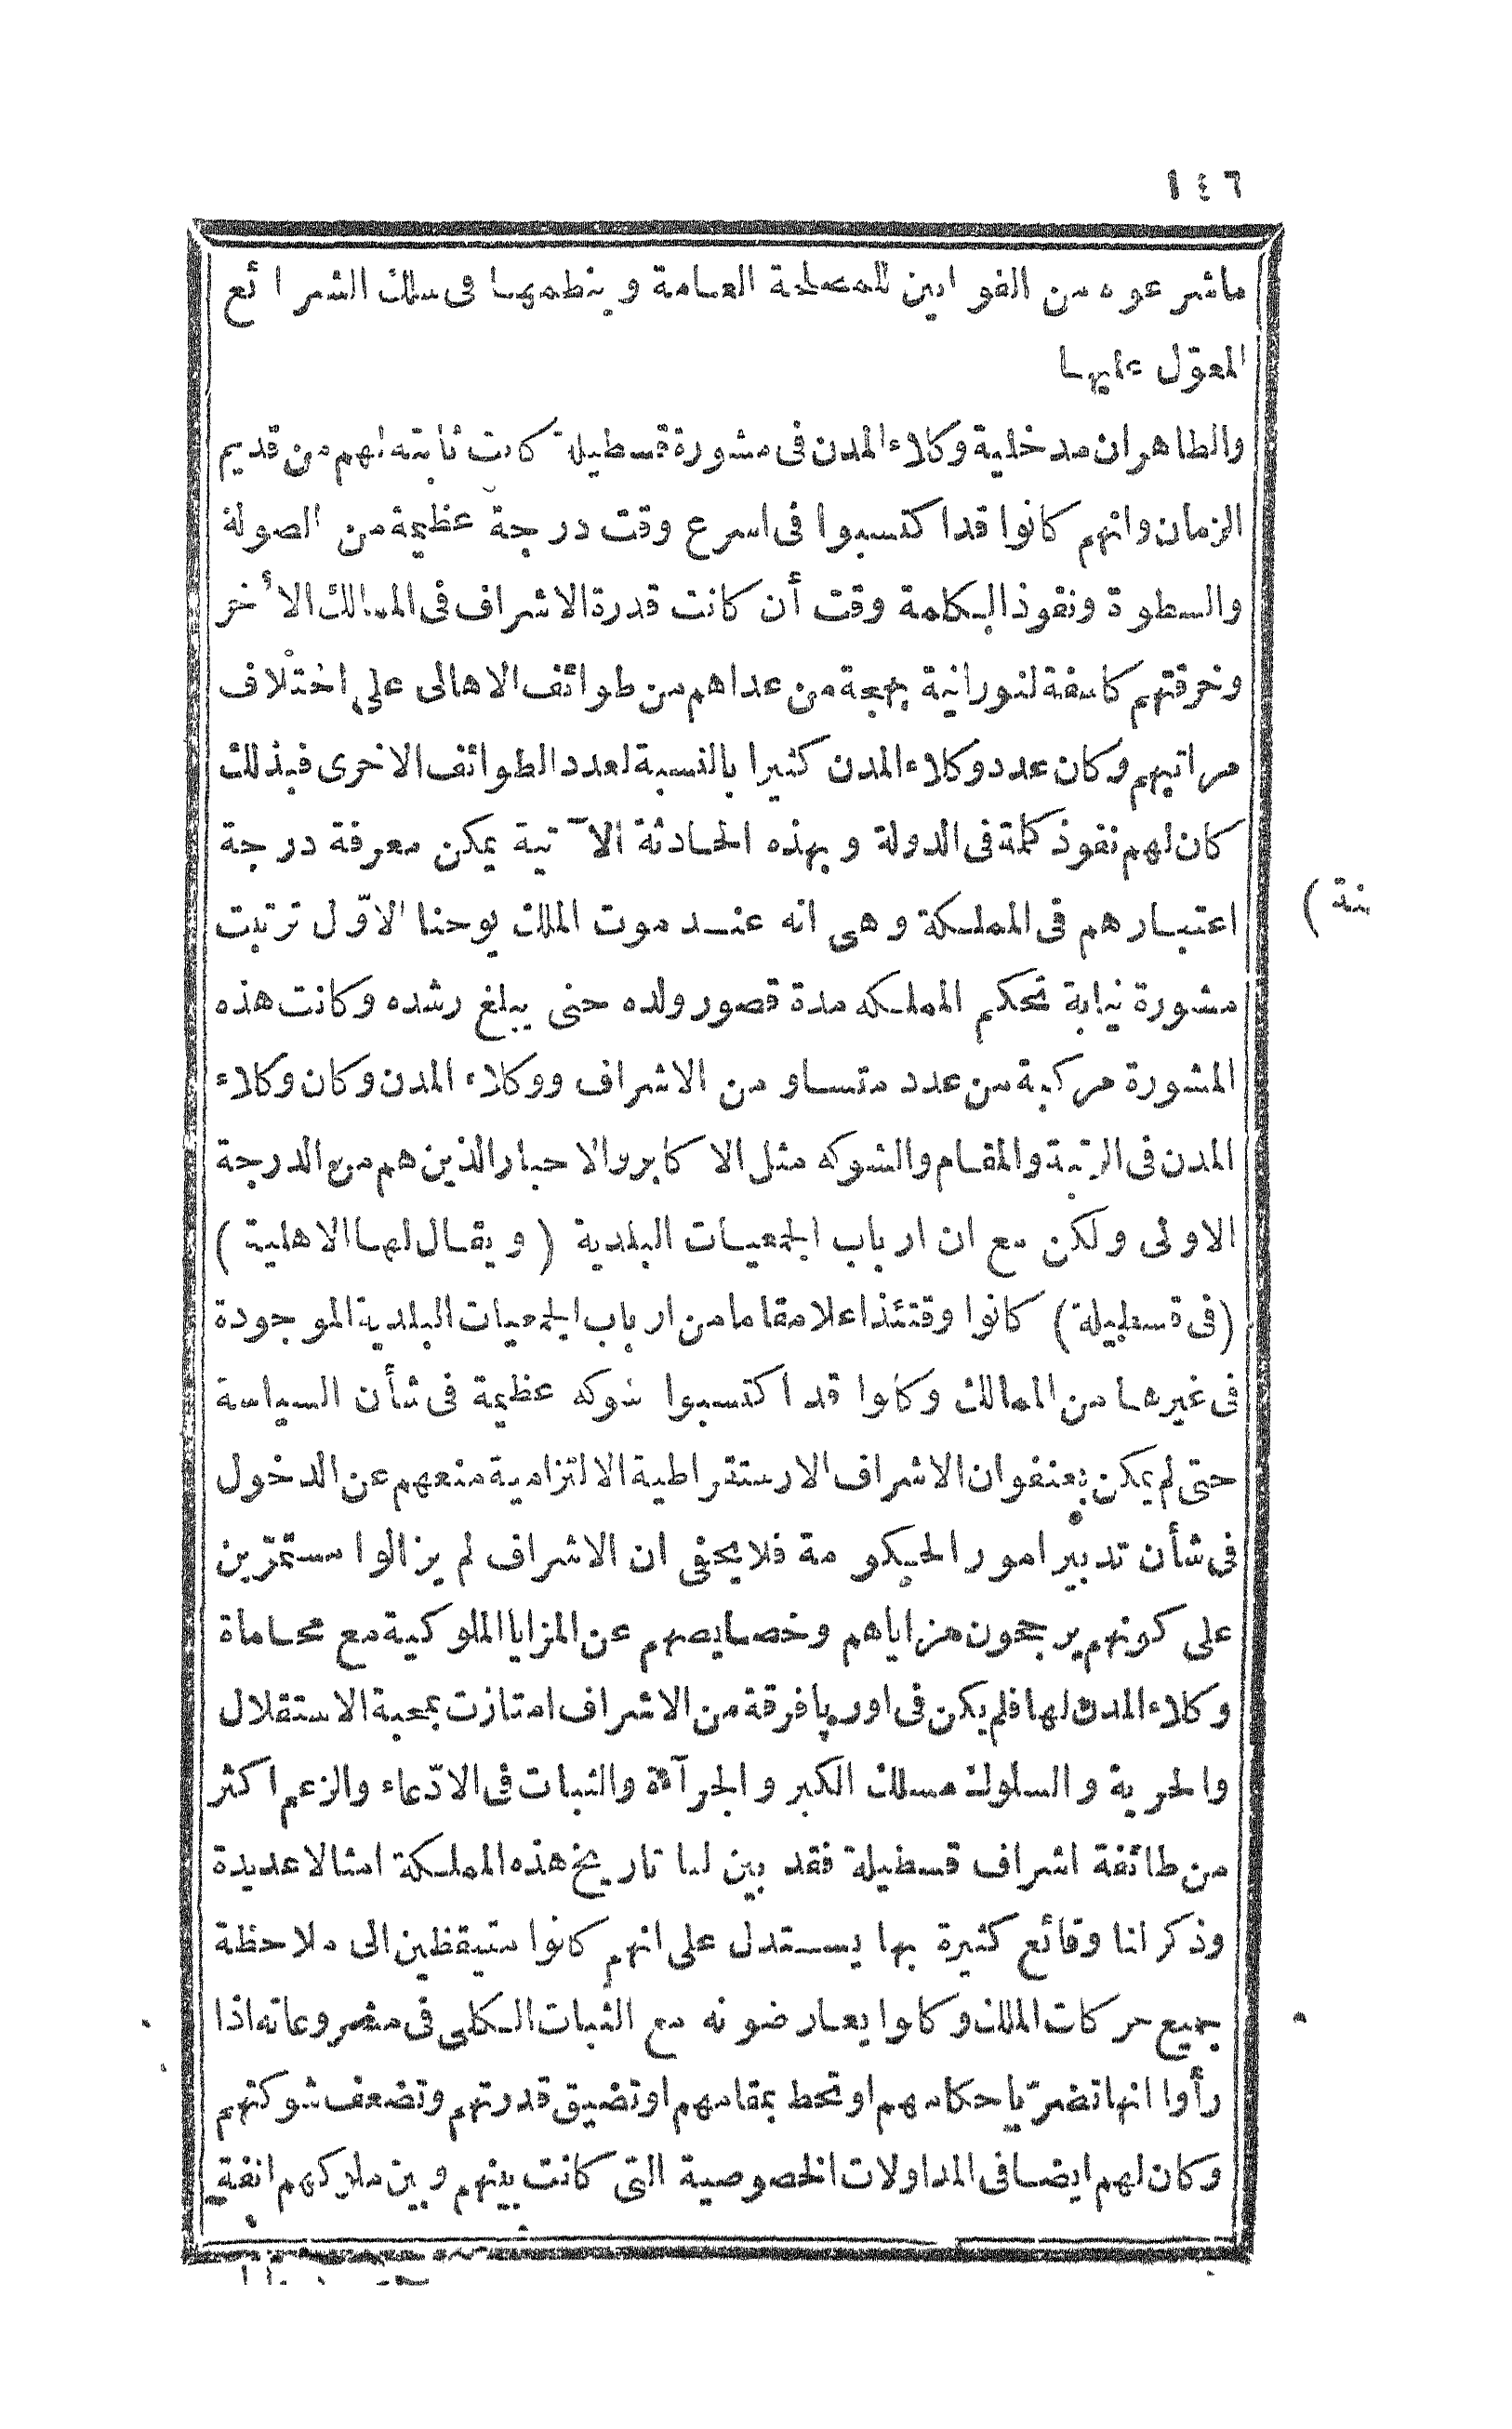 ١٤٦
ماشرعوه من القوانين للمصلحة العامة وينظمها فى سلك الشرائع
المعوّل عليها
والظاهر ان مدخلية وكلاء المدن فى مشورة قسطيلة كانت ثابتة لهم من قديم
الزمان وانهم كانوا قد اكتسبوا فى اسرع وقت درجة عظيمة من الصولة
والسطوة ونفوذ الكلمة وقت أن كانت قدرة الاشراف فى الممالك الأخر
وخرقتهم كاسفة لنورانية بهجة من عداهم من طوائف الاهالى على اختلاف
مراتبهم وكان عدد وكلاء المدن كثيرا بالنسبة لعدد الطوائف الاخرى فبذلك
كان لهم نفوذ كلمة فى الدولة وبهذه الحادثة الآتية يمكن معرفة درجة
اعتبارهم فى المملكة وهى انه عند موت الملك يوحنا الاوّل ترتبت
نة )
مشورة نيابة تحكم المملكه مدة قصور ولده حتى يبلغ رشده وكانت هذه
المشورة مركبة من عدد متساو من الاشراف ووكلاء المدن وكان وكلاء
المدن فى الرتبة والمقام والشوكه مثل الاكابر والاحبار الذين هم من الدرجة
الاولى ولكن مع ان ارباب الجمعيات البلدية ( ويقال لها الاهلية )
(فى قسطيلة) كانوا وقتئذ اعلا مقاما من ارباب الجمعيات البلدية الموجودة
فى غيرها من الممالك وكانوا قد اكتسبوا شوكه عظيمة فى شأن السياسة
حتى لم يمكن بعنفوان الاشراف الارستقراطية الالتزامية منعهم عن الدخول
فى شأن تدبير امور الحكومة فلا يخفى ان الاشراف لم يزالوا مستمرّين
على كونهم يرجحون مزاياهم وخصايصهم عن المزايا الملوكية مع محاماة
وكلاء المدن لها فلم يكن فى اوروپا فرقة من الاشراف امتازت بمحبة الاستقلال
والحرية والسلوك مسلك الكبر والجرآءة والثبات فى الادّعاء والزعم اكثر
من طائفة اشراف قسطيلة فقد بين لنا تاريخ هذه المملكة امثالا عديدة
وذكر لنا وقائع كثيرة بها يستدل على انهم كانوا متيقظين الى ملاحظة
جميع حركات الملك وكانوا يعارضونه مع الثبات الكلى فى مشروعاته اذا
رأوا انها تضرّ باحكامهم او تحط بمقامهم او تضيق قدرتهم وتضعف شوكتهم
وكان لهم ايضا فى المداولات الخصوصية التى كانت بينهم وبين ملوكهم انفة